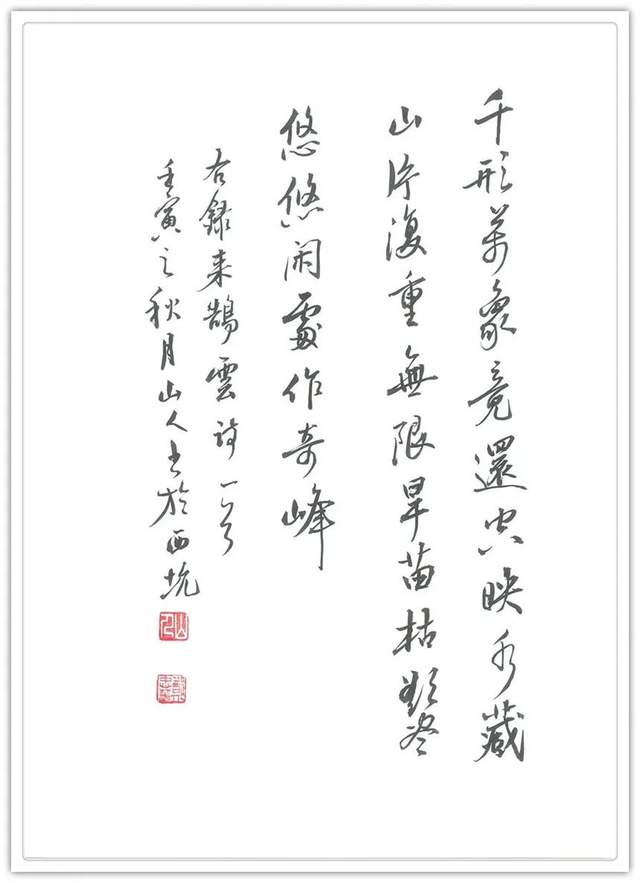 千形萬象竟還空映水藏
山片復重無限旱苗枯欲盡
悠悠闲處作奇峰
右錄来鵠雲詩一首
壬寅之秋月山人書於西坑
山人